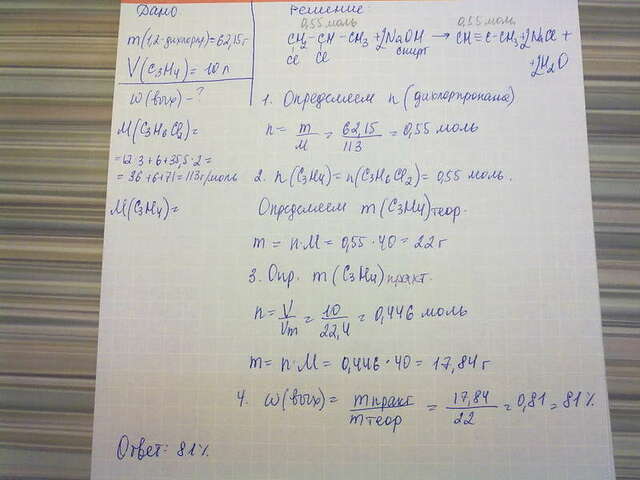 Дано:
m(1,2-дихлорпр)=62,15г
V(C3H4) = 10 л
ω(вых) - ?
M(C3H6Cl2)=
=12·3+6+35,5·2=
=36+6+71=113г/моль
M(C3H4)=
Решение:
0,55 моль 0,55 моль
CH2-CH-CH3 +2NaOH → CH≡C-CH3+2NaCl +
Cl Cl спирт +2H2O
1. Определяем n (дихлорпропана)
n = m/M = 62,15/113 = 0,55 моль
2. n(C3H4)=n(C3H6Cl2)=0,55 моль.
Определяем m(C3H4)теор.
m = n·M = 0,55 · 40 = 22 г
3. Опр. m(C3H4)практ.
n = V/Vm = 10/22,4 = 0,446 моль
m = n·M = 0,446 · 40 = 17,84 г
4. ω(вых) = mпракт/mтеор = 17,84/22 = 0,81 = 81%
Ответ: 81%